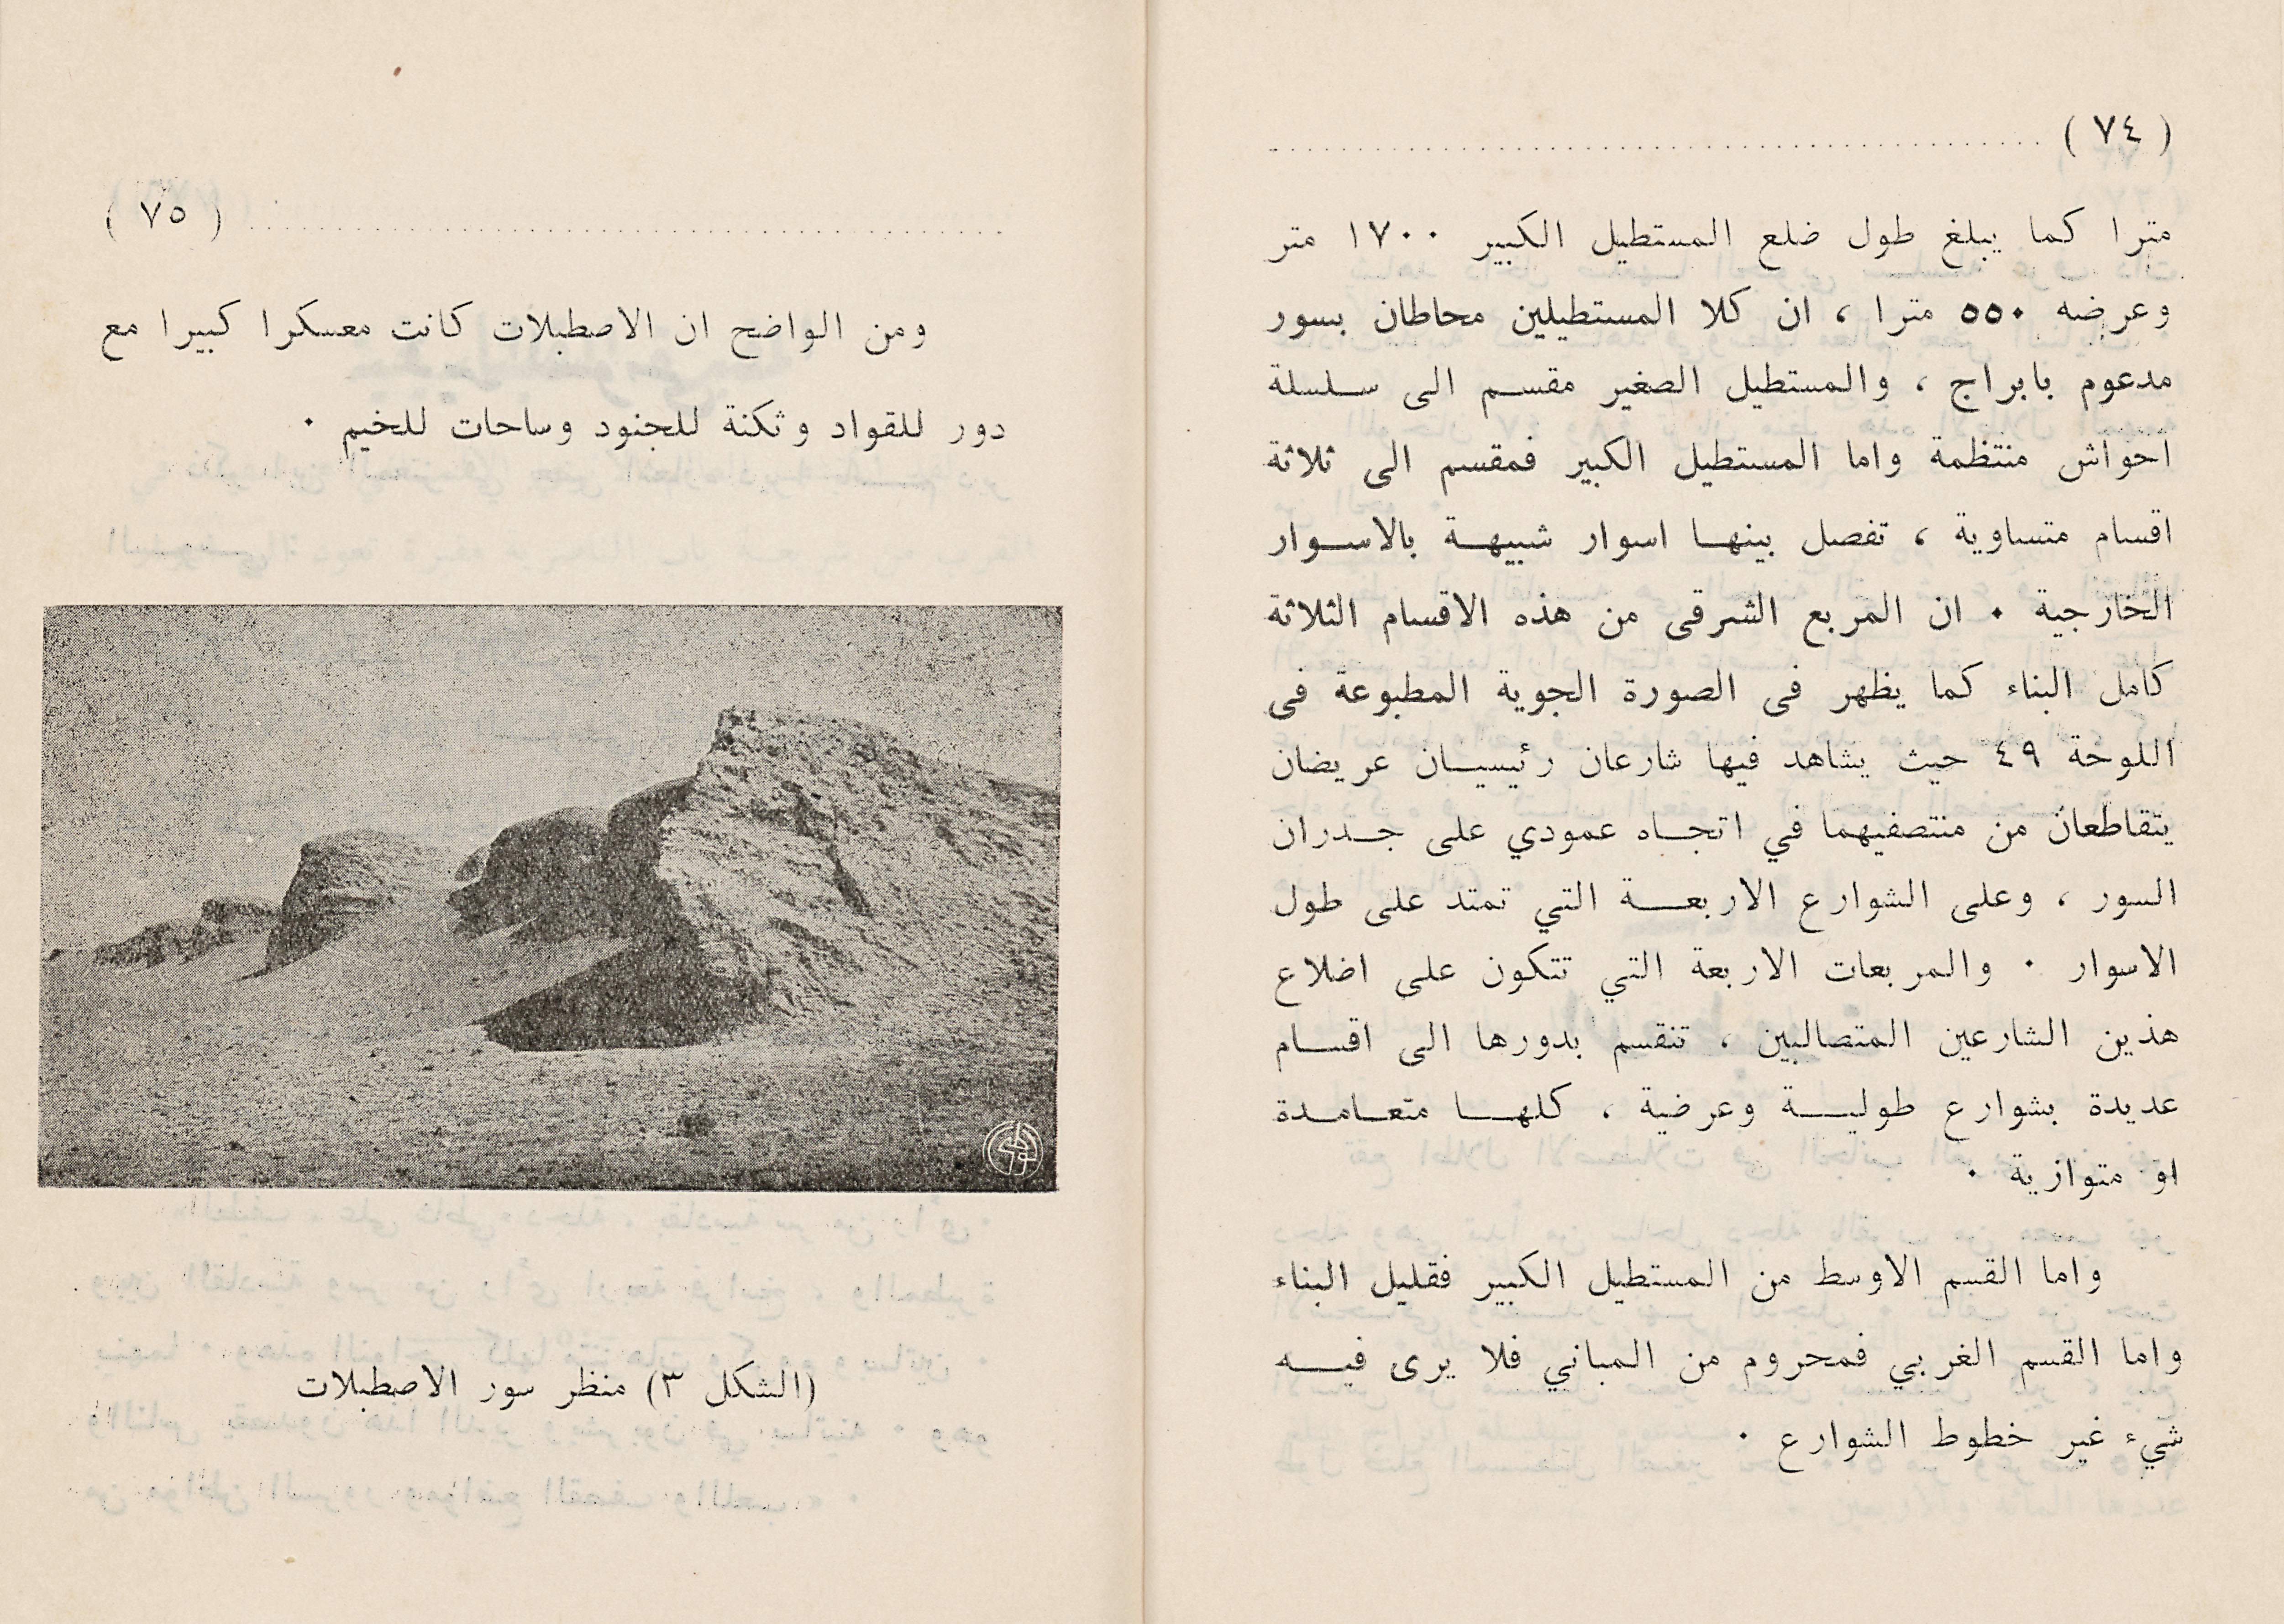 ( ٧٤ )
مترا كما يبلغ طول ضلع المستطيل الكبير ١٧٠٠ متر
وعرضه ٥٥٠ مترا ، ان كلا المستطيلين محاطان بسور
مدعوم بابراج ، والمستطيل الصغير مقسم الى سلسلة
احواش منتظمة واما المستطيل الكبير فمقسم الى ثلاثة
اقسام متساوية ، تفصل بينها اسوار شبيهة بالاسوار
الخارجية ٠ ان المربع الشرقى من هذه الاقسام الثلاثة
كامل البناء كما يظهر فى الصورة الجوية المطبوعة فى
اللوحة ٤٩ حيث يشاهد فيها شارعان رئيسيان عريضان
يتقاطعان من منتصفيهما في اتجاه عمودي على جدران
السور ، وعلى الشوارع الاربعة التي تمتد على طول
الاسوار ٠ والمربعات الاربعة التي تتكون على اضلاع
هذين الشارعين المتصالبين ، تنقسم بدورها الى اقسام
عديدة بشوارع طولية وعرضية ، كلها متعامدة
او متوازية ٠
واما القسم الاوسط من المستطيل الكبير فقليل البناء
واما القسم الغربي فمحروم من المباني فلا يرى فيه
شيء غير خطوط الشوارع ٠
( ٧٥ )
ومن الواضح ان الاصطبلات كانت معسكرا كبيرا مع
دور للقواد وثكنة للجنود وساحات للخيم ٠
(الشكل ٣) منظر سور الاصطبلات